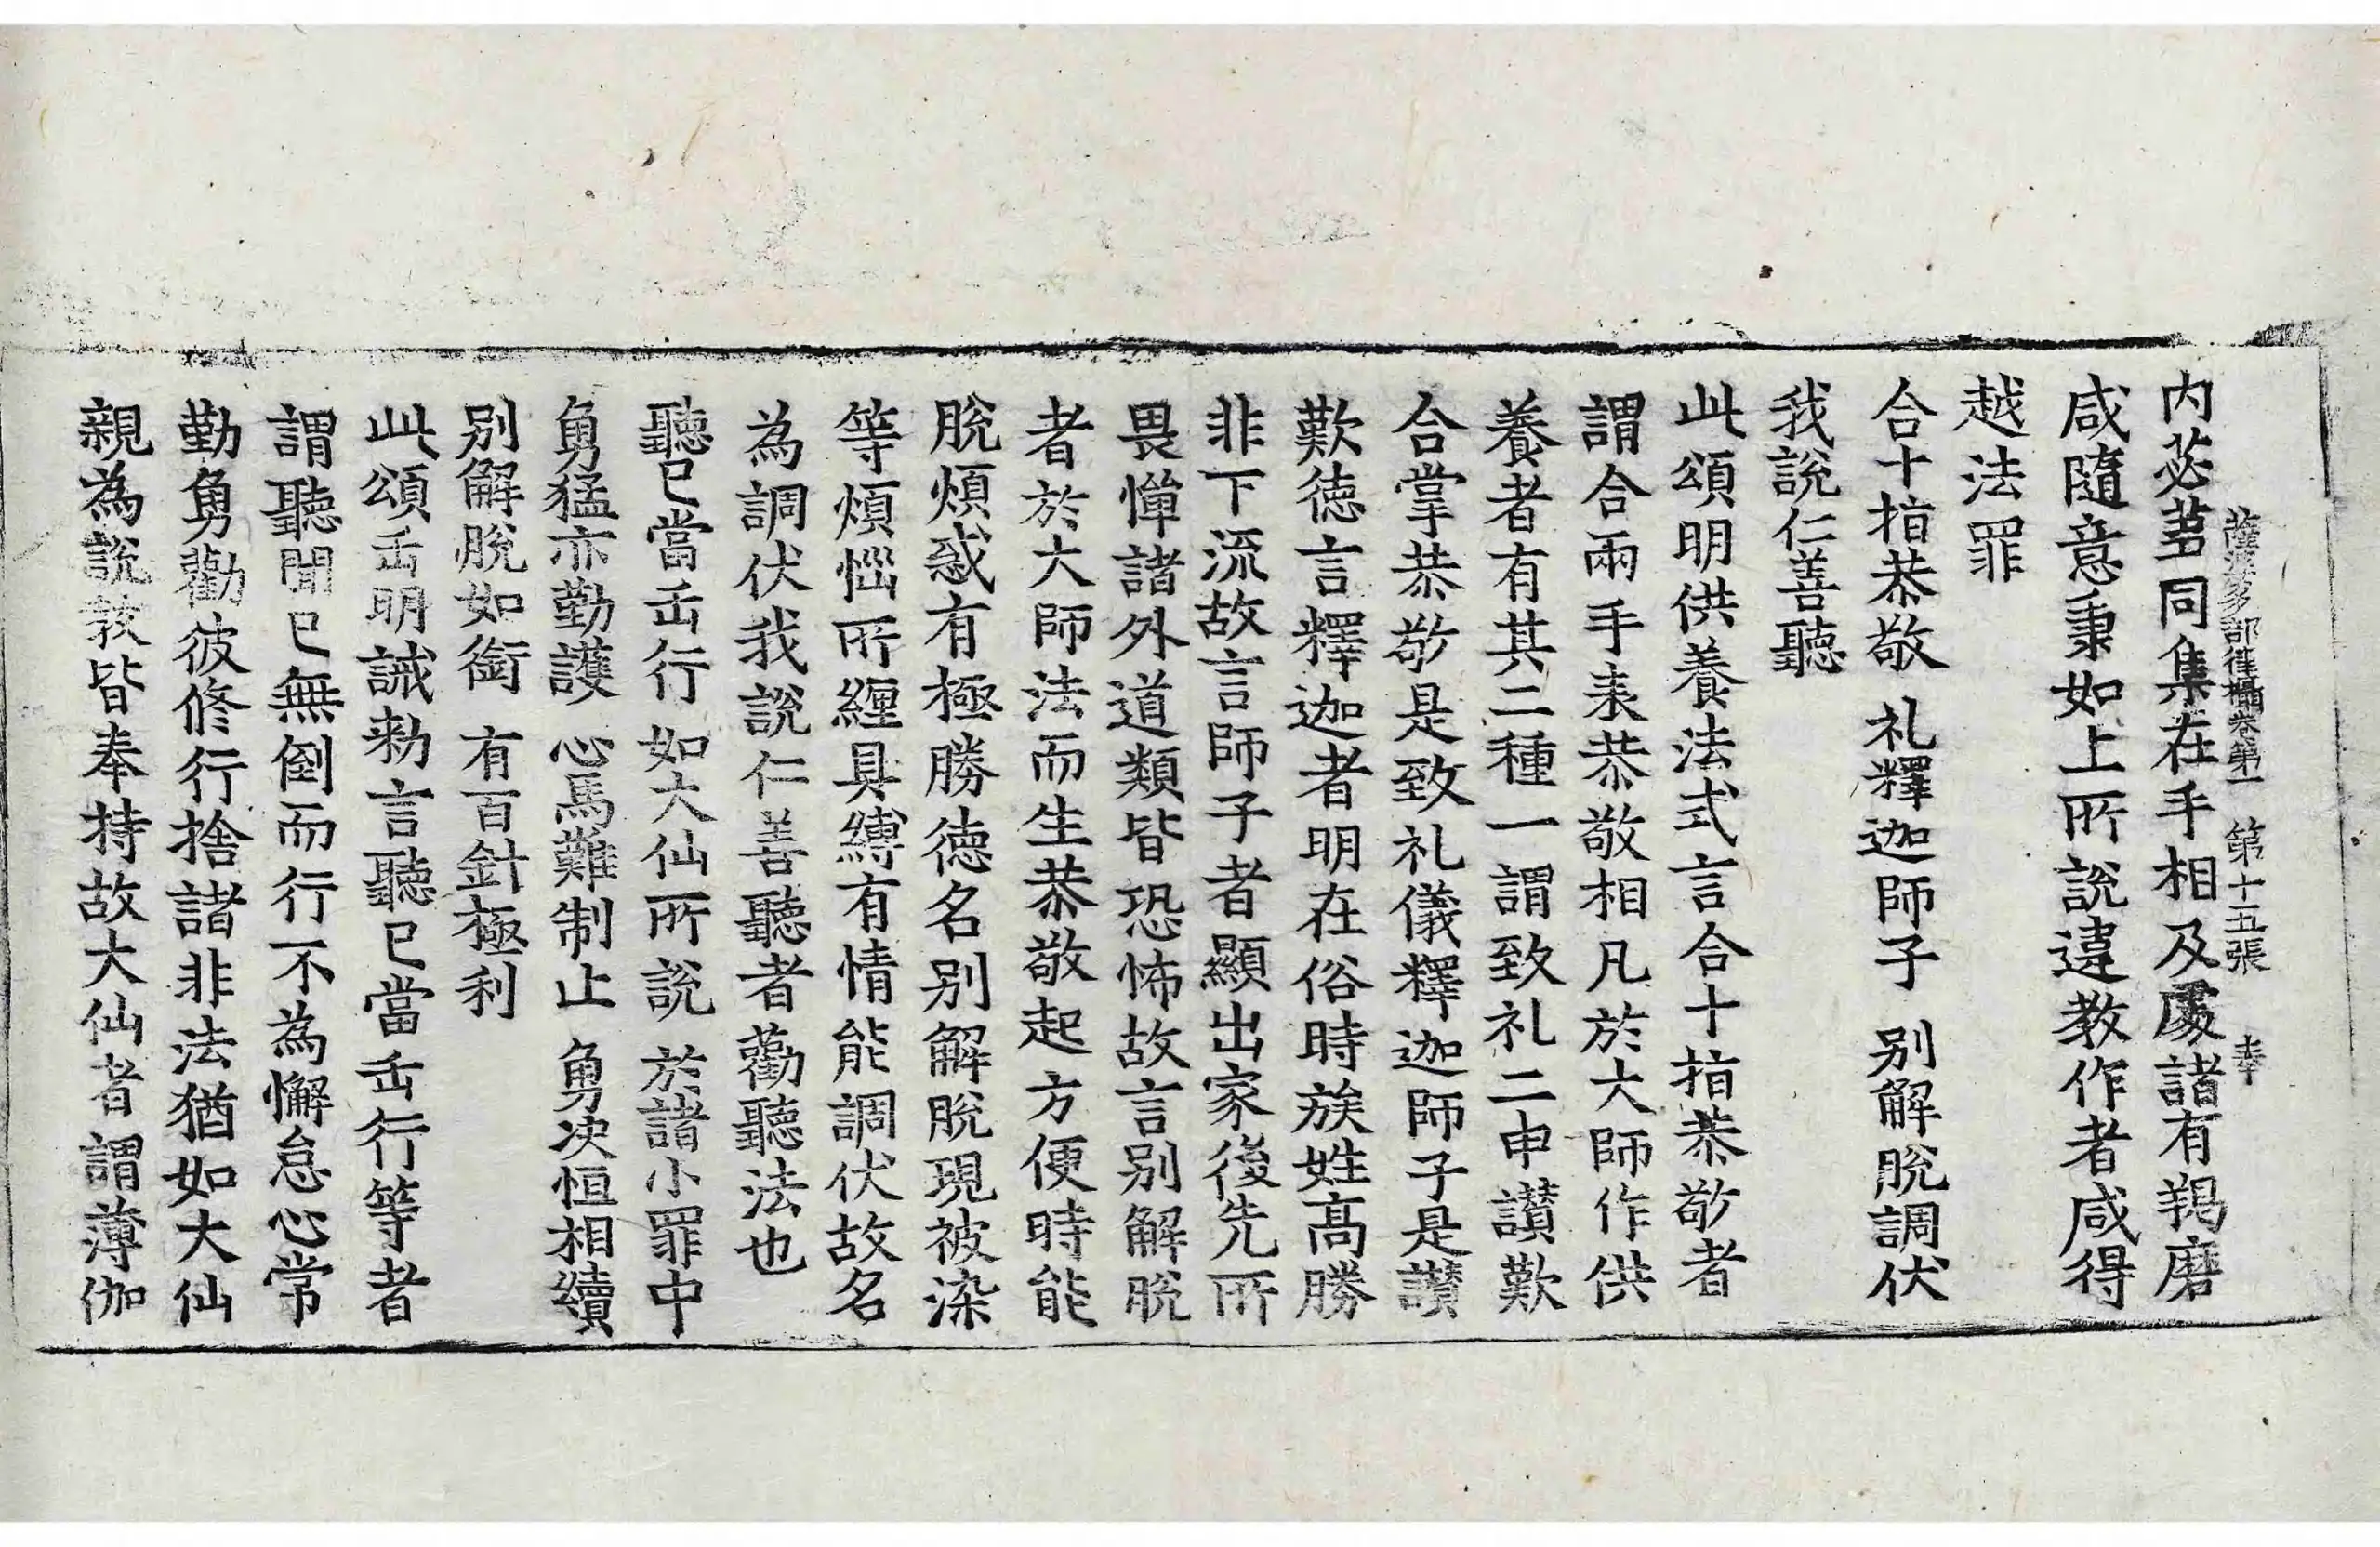 薩婆多部律攝卷第一 第十五張 奉
內苾芻同集在手相及處諸有羯磨
咸隨意秉如上所說違教作者咸得
越法罪
合十指恭敬 礼釋迦師子 別解脫調伏
我說仁善聽
此頌明供養法式言合十指恭敬者
謂合兩手表恭敬相凡於大師作供
養者有其二種一謂致礼二申讃歎
合掌恭敬是致礼儀釋迦師子是讃
歎德言釋迦者明在俗時族姓高勝
非下流故言師子者顯出家後先所
畏憚諸外道類皆恐怖故言別解脫
者於大師法而生恭敬起方便時能
脫煩惑有極勝德名別解脫現被染
等煩惱所纏具縛有情能調伏故名
為調伏我說仁善聽者勸聽法也
聽已當缶行 如大仙所說 於諸小罪中
勇猛亦勤護 心馬難制止 勇决恒相續
別解脫如銜 有百針極利
此頌缶明誡勑言聽已當缶行等者
謂聽聞已無倒而行不為懈怠心常
勤勇勸彼修行捨諸非法猶如大仙
親為說教皆奉持故大仙者謂薄伽